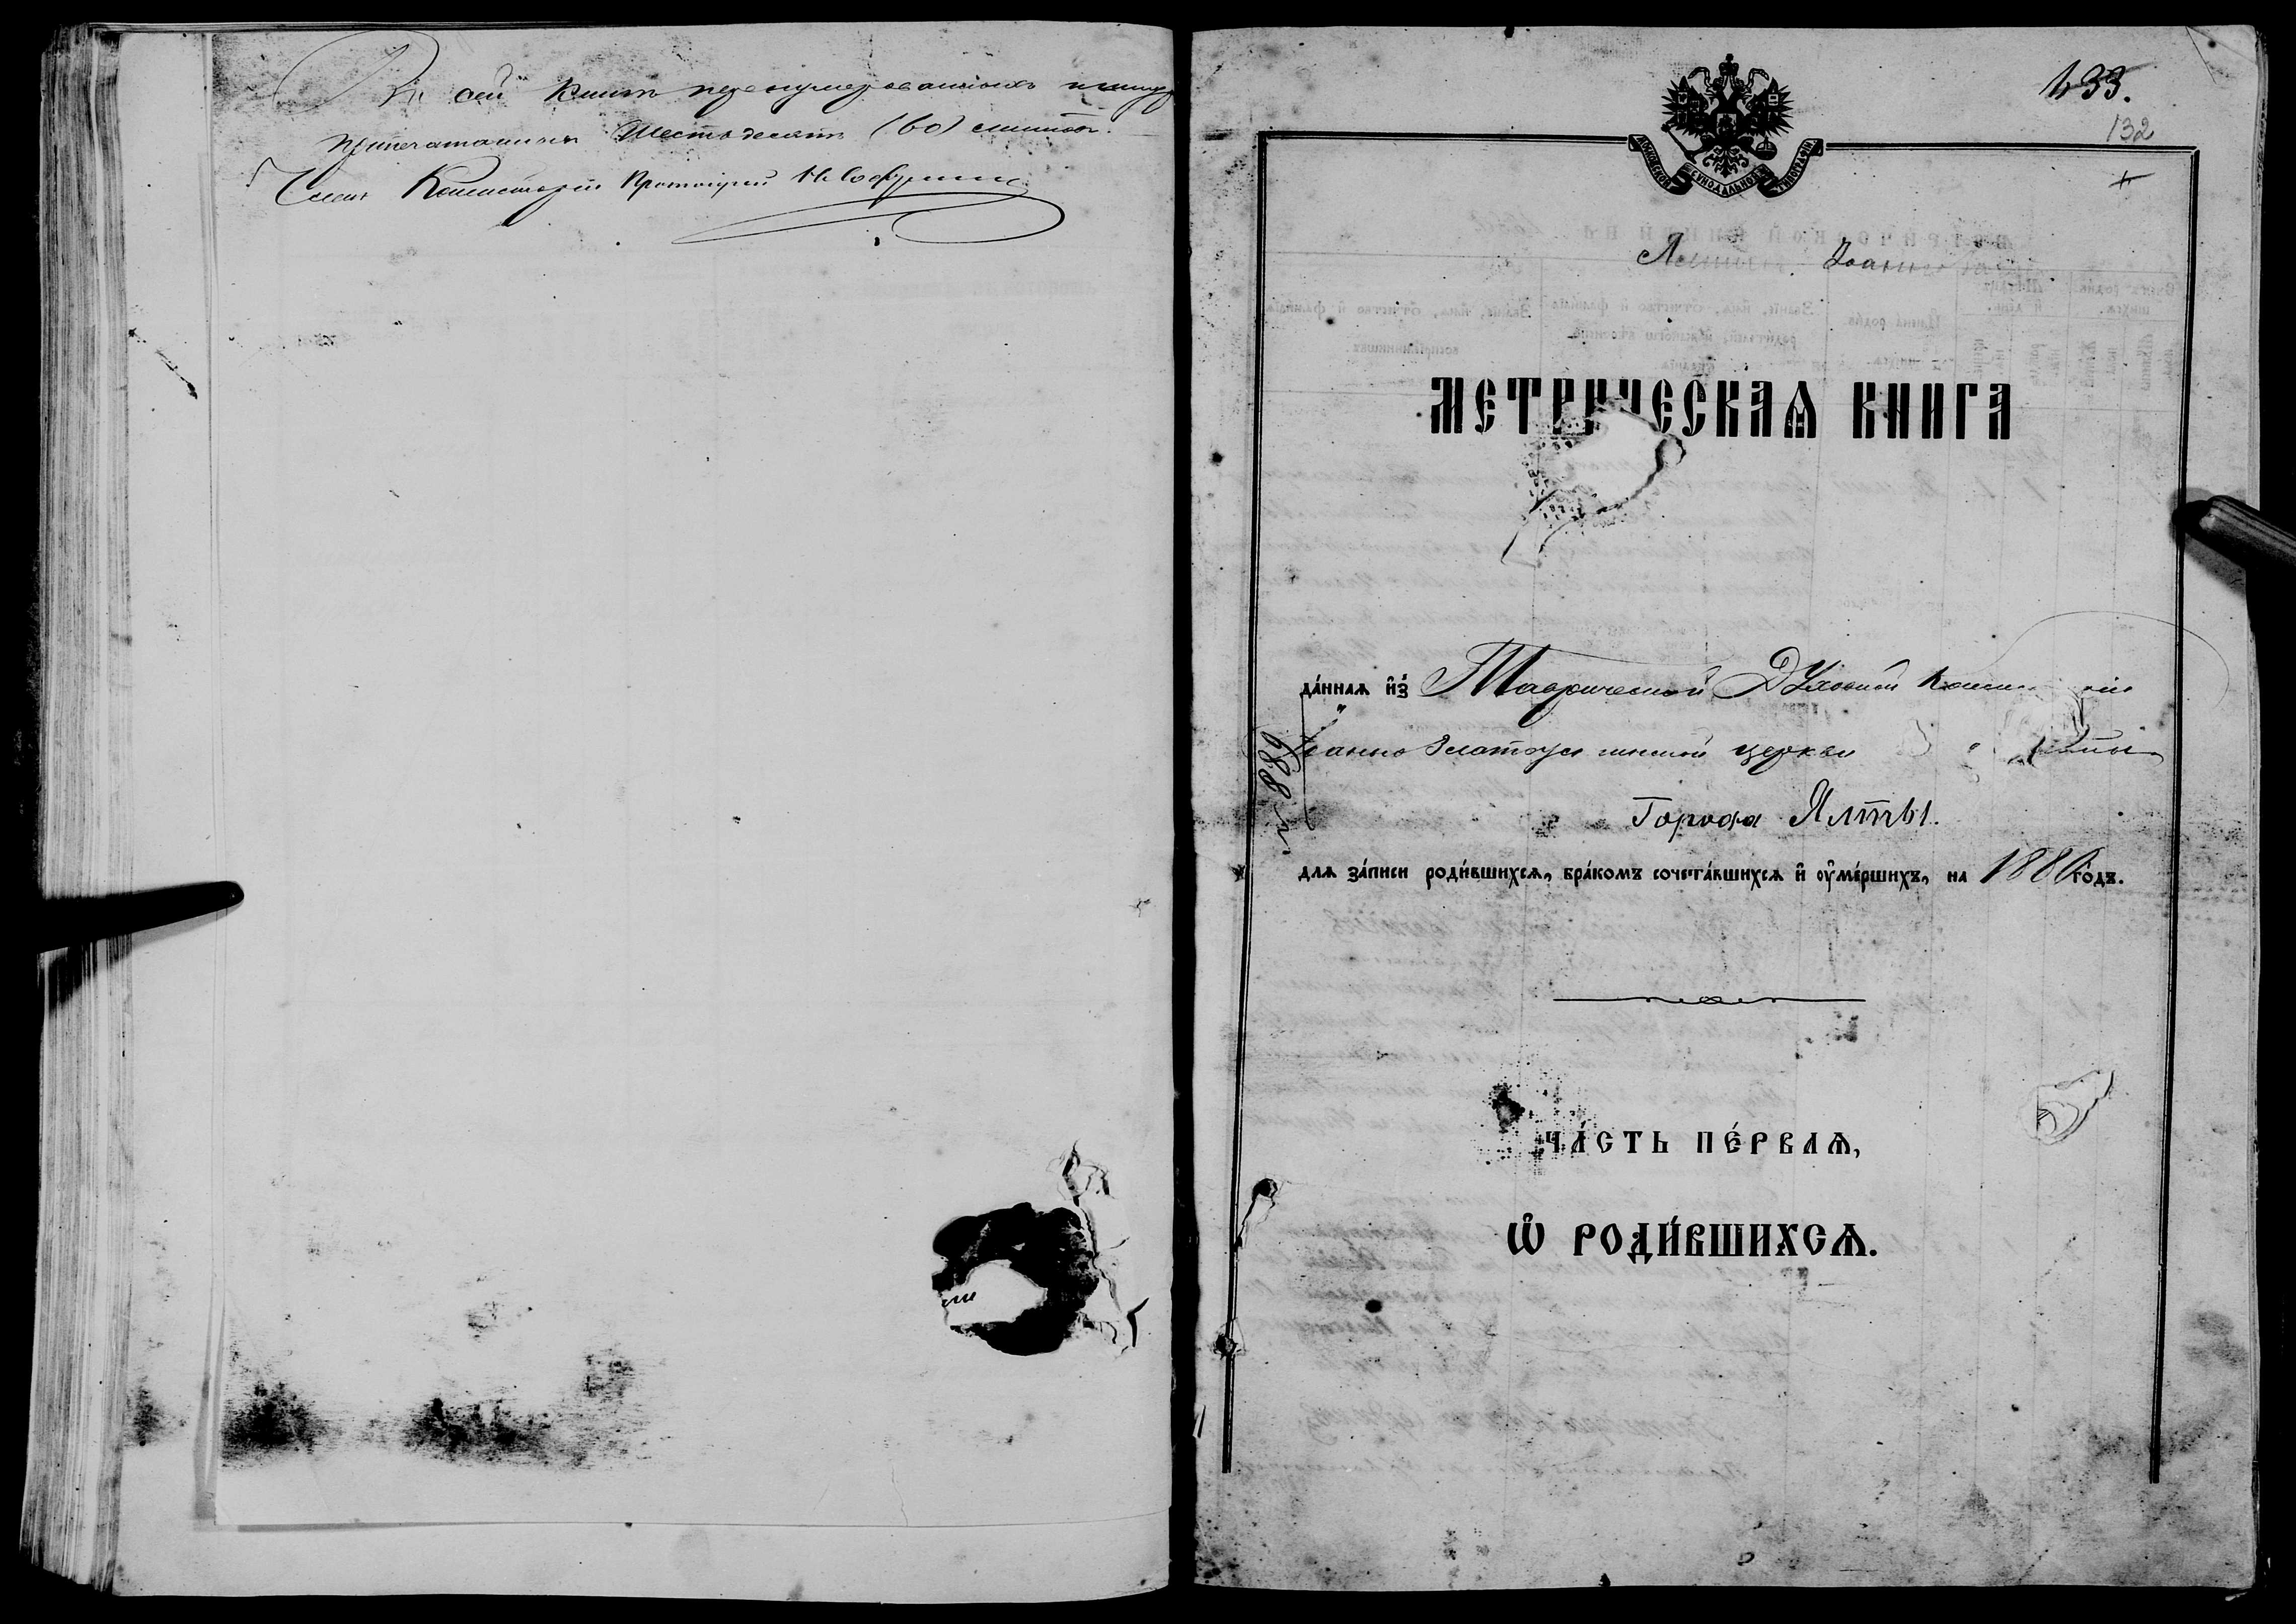 въ сей книгѣ перенумерованныхъ
припечатанныхъ Шестьдесятъ (60) листовъ.
Членъ Консисторіи Протоіерей
433.
132
МОСКОВСКОЙ СѴНОДАЛЬНОЙ ТИПОГРАФІИ
МЕТРИЧЕСКАѦ КНИГА
да́ннаѧ и҆з̾ Таврической Духовной
Іоанно Златоустинской церкви
Города Ялты.
688 л.
длѧ за́писи роди́вшихсѧ, бра́комъ сочета́вшихсѧ и҆ оу҆ме́ршихъ, на 1886 го́дъ.
ЧА́СТЬ ПЕ́РВАѦ,
Ѡ҆ РОДИ́ВШИХСѦ.